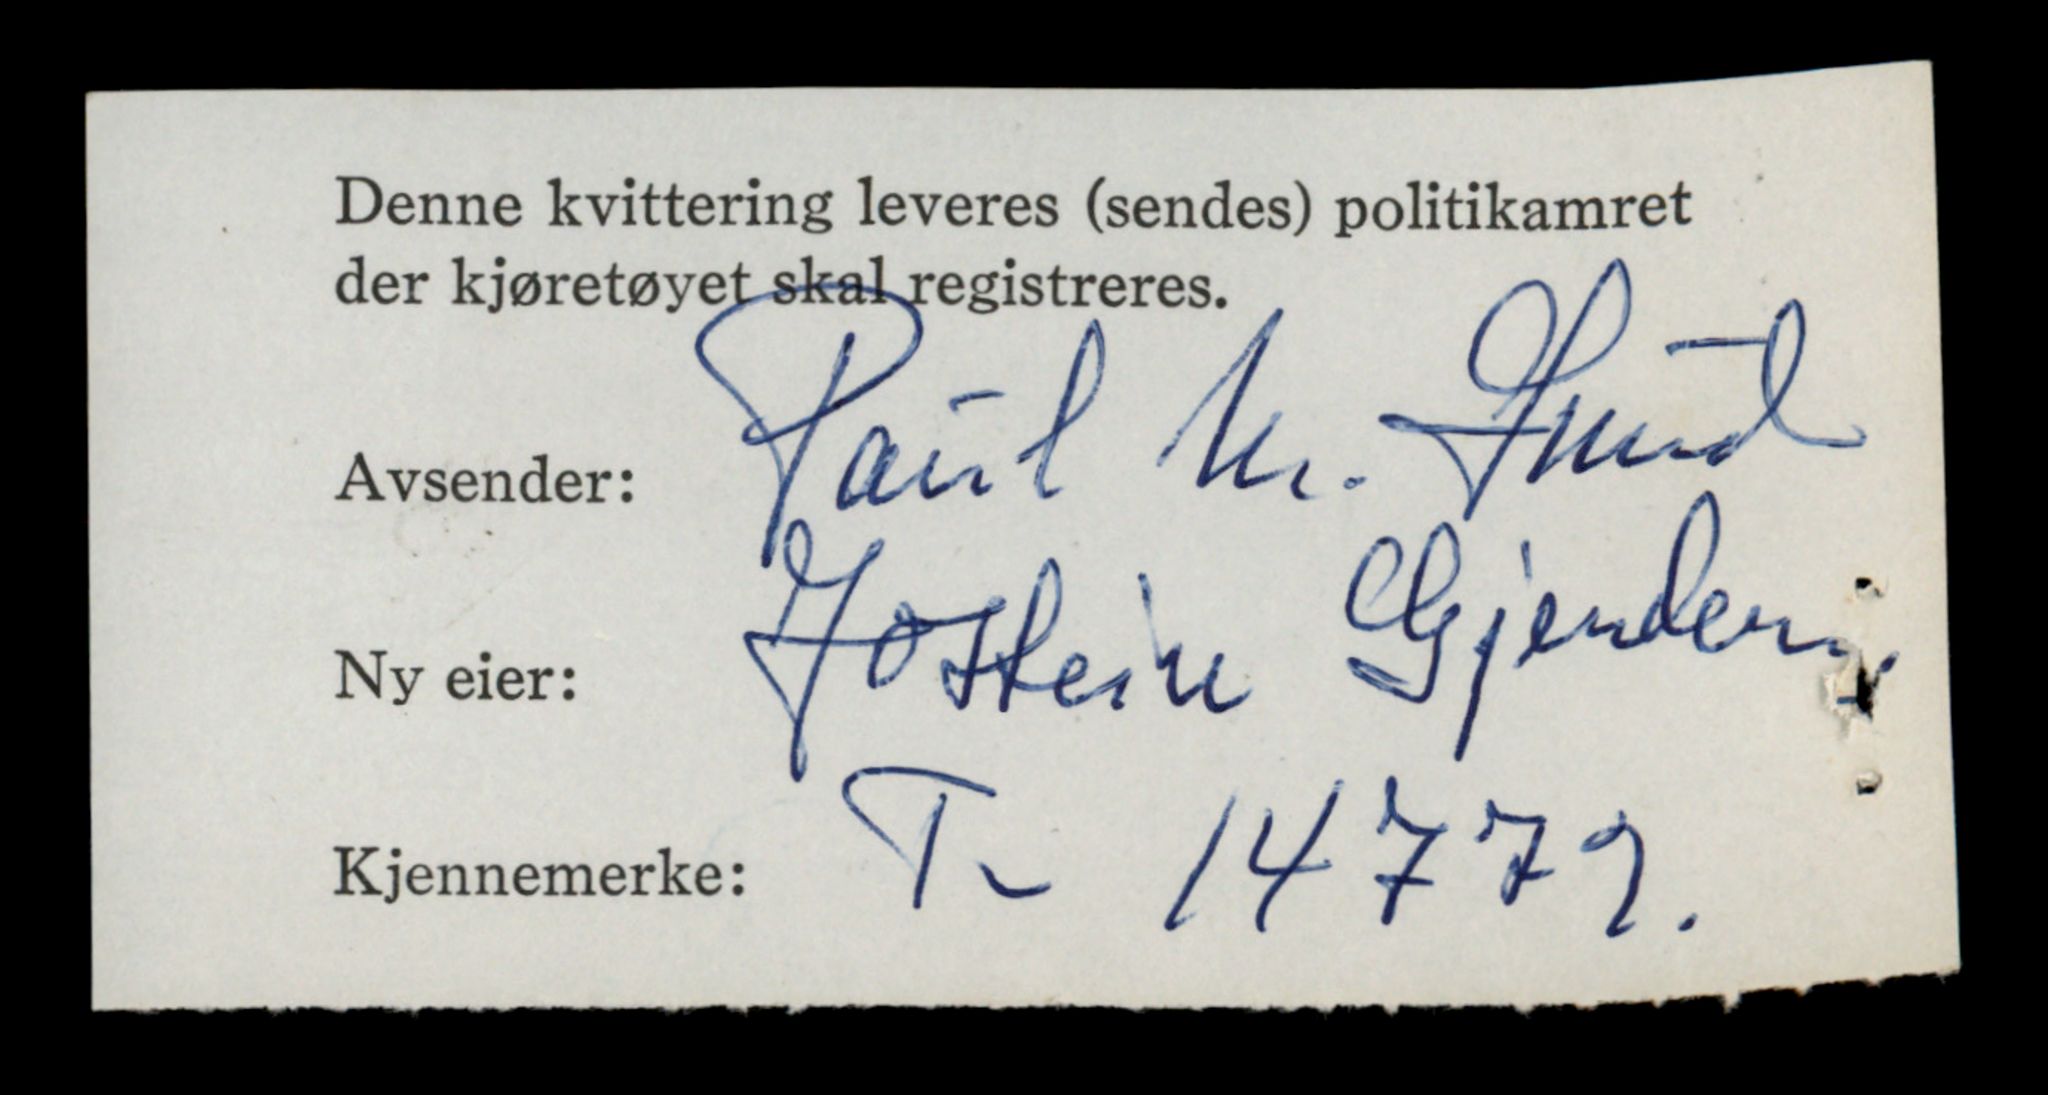 Denne kvittering leveres (sendes) politikamret
der kjøretøyet skal registreres.
Avsender: Paul M.
Ny eier: Jostein Gjendem
Kjennemerke: T- 14779.